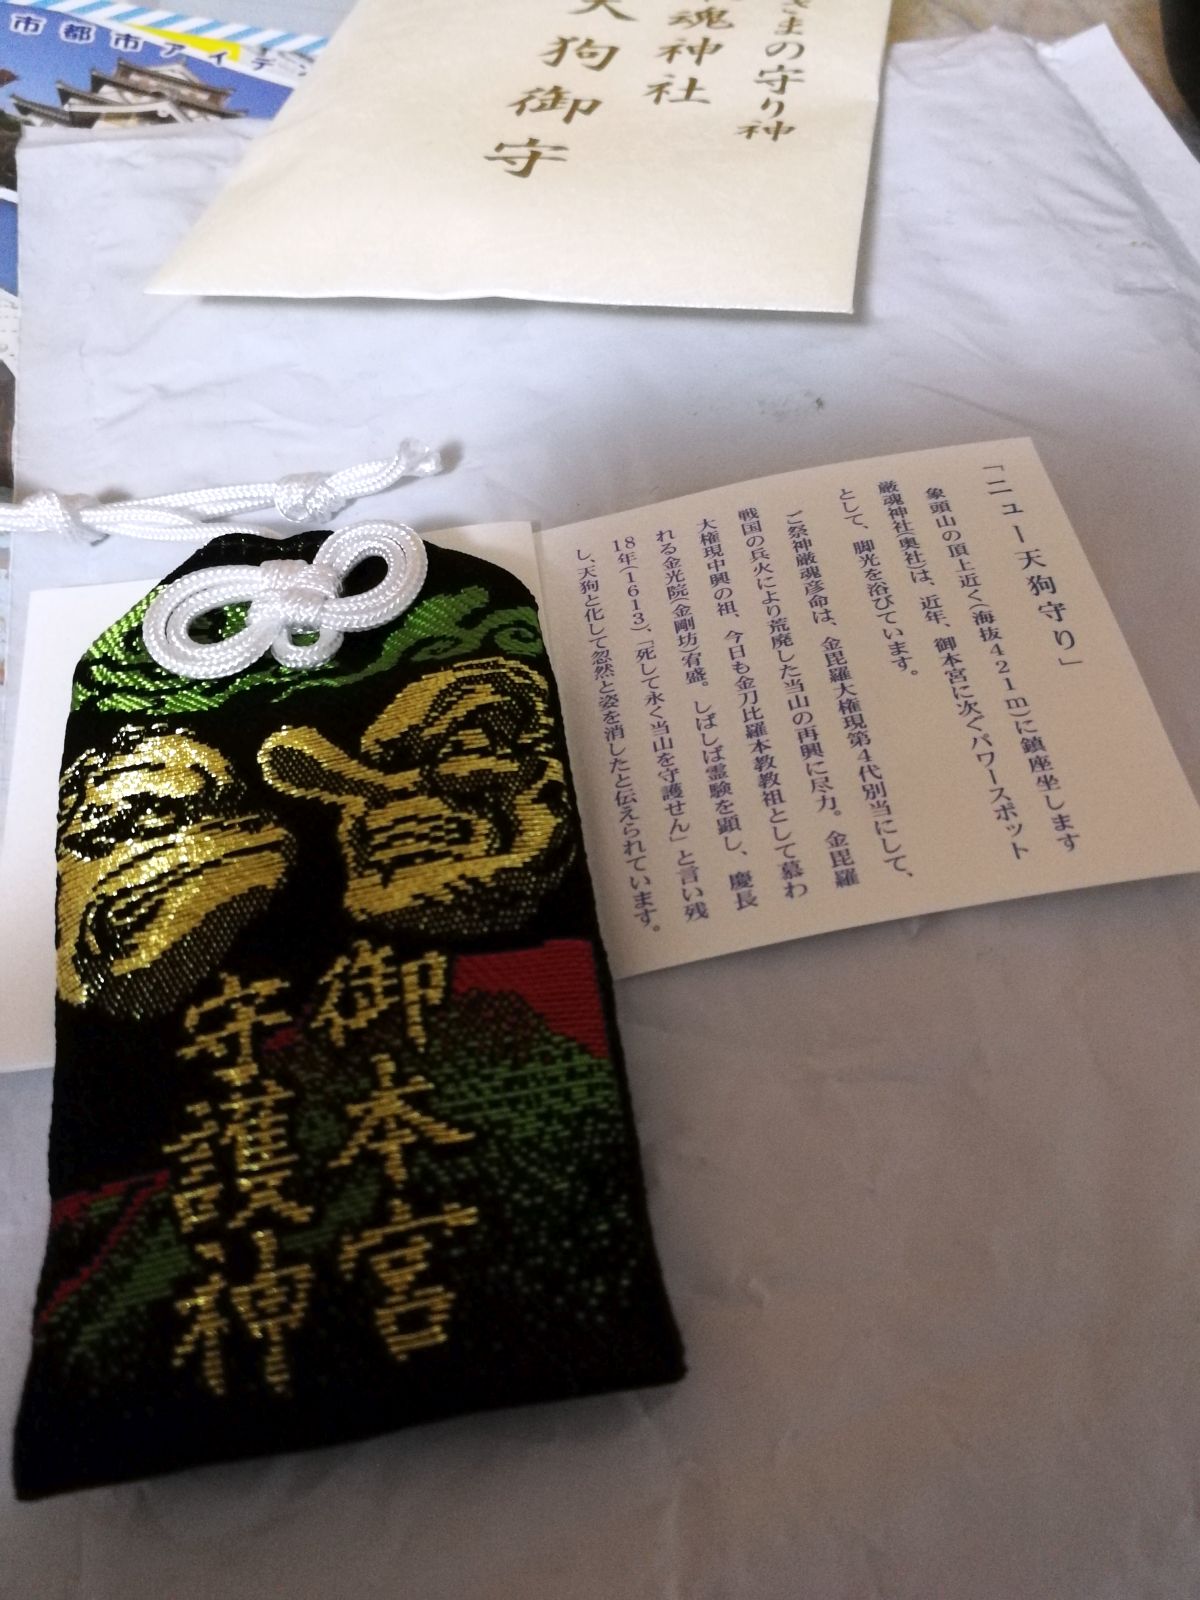 市都市アイデン
さまの守り神
魂神社
天狗御守
「ニュー天狗守り」
象頭山の頂上近く(海抜421m)に鎮座坐します
厳魂神社(奥社)は、近年、御本宮に次ぐパワースポット
として、脚光を浴びています。
ご祭神厳魂彦命は、金毘羅大権現第4代別当にして、
戦国の兵火により荒廃した当山の再興に尽力。金毘羅
大権現中興の祖、今日も金刀比羅本教教祖として慕わ
れる金光院(金剛坊)宥盛。しばしば霊験を顕し、慶長
18年(1613)、「死して永く当山を守護せん」と言い残
し、天狗と化して忽然と姿を消したと伝えられています。
御本宮
守護神